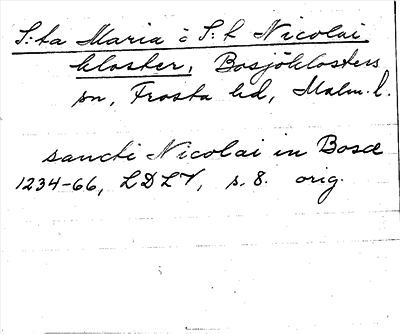 S:ta Maria o S:t Nicolai
kloster, Bosjöklosters
sn, Frosta hd, Malm. l.
sancti Nicolai in Bosœ
1234-66, LDLV, s. 8. orig.